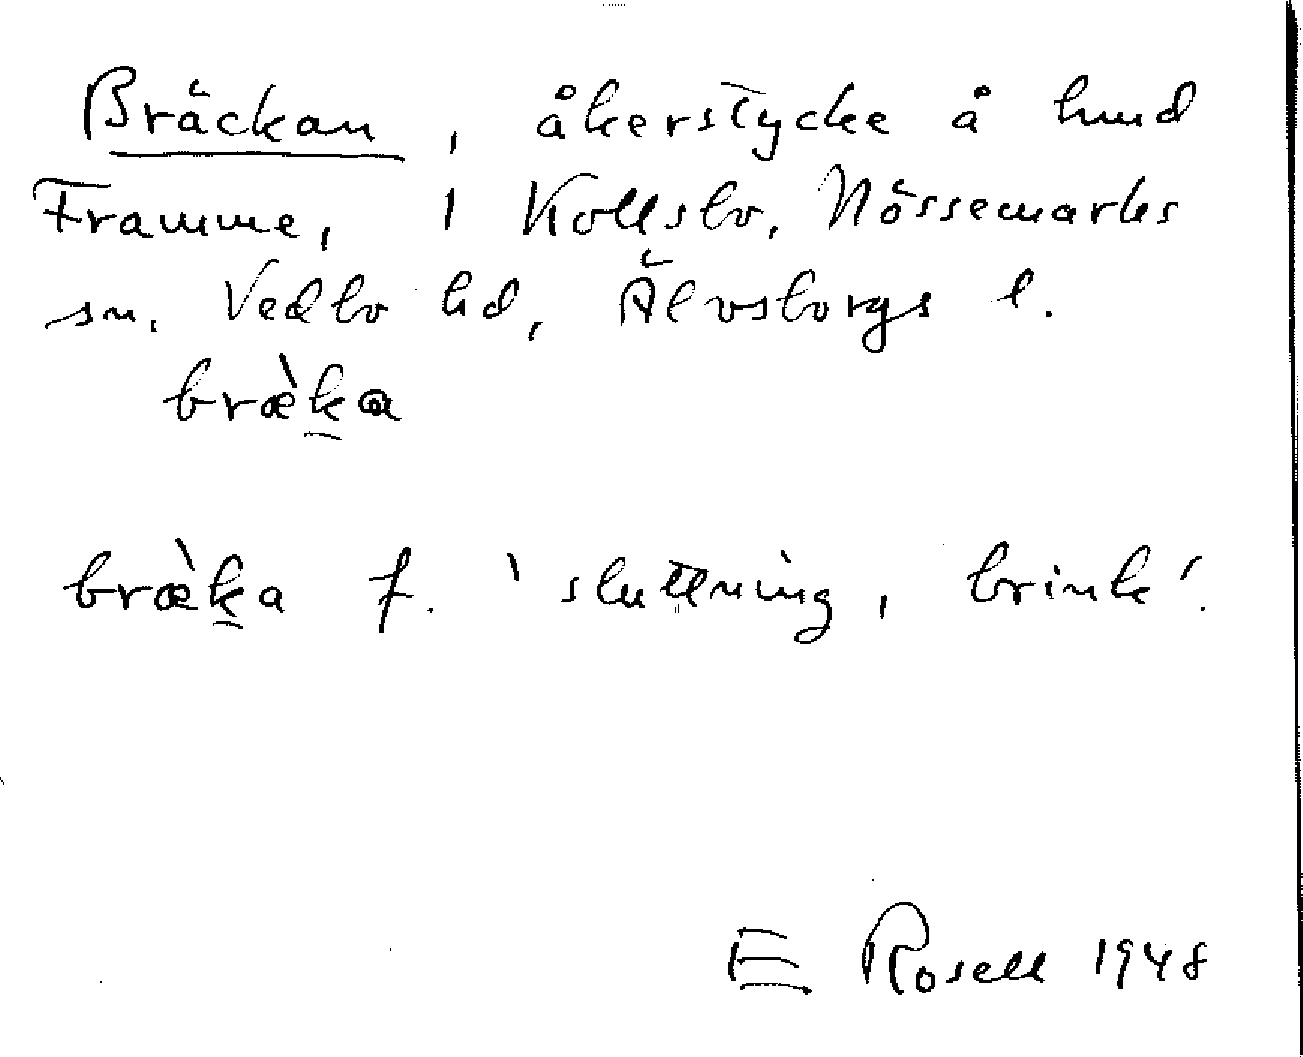 Bräckan, åkerstycke å hmd
Framme, i Kollsbo, Nössemarks
sn. Vedbo hd, Älvsborgs l.
bræ̀k̲a
bræ̀k̲a f. 'sluttning, brink'.
E Rosell 1948